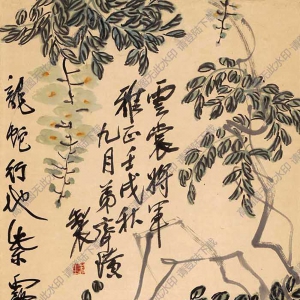 雲裳將軍
雅正壬戌秋
九月弟齊璜
製
龍蛇行地紫